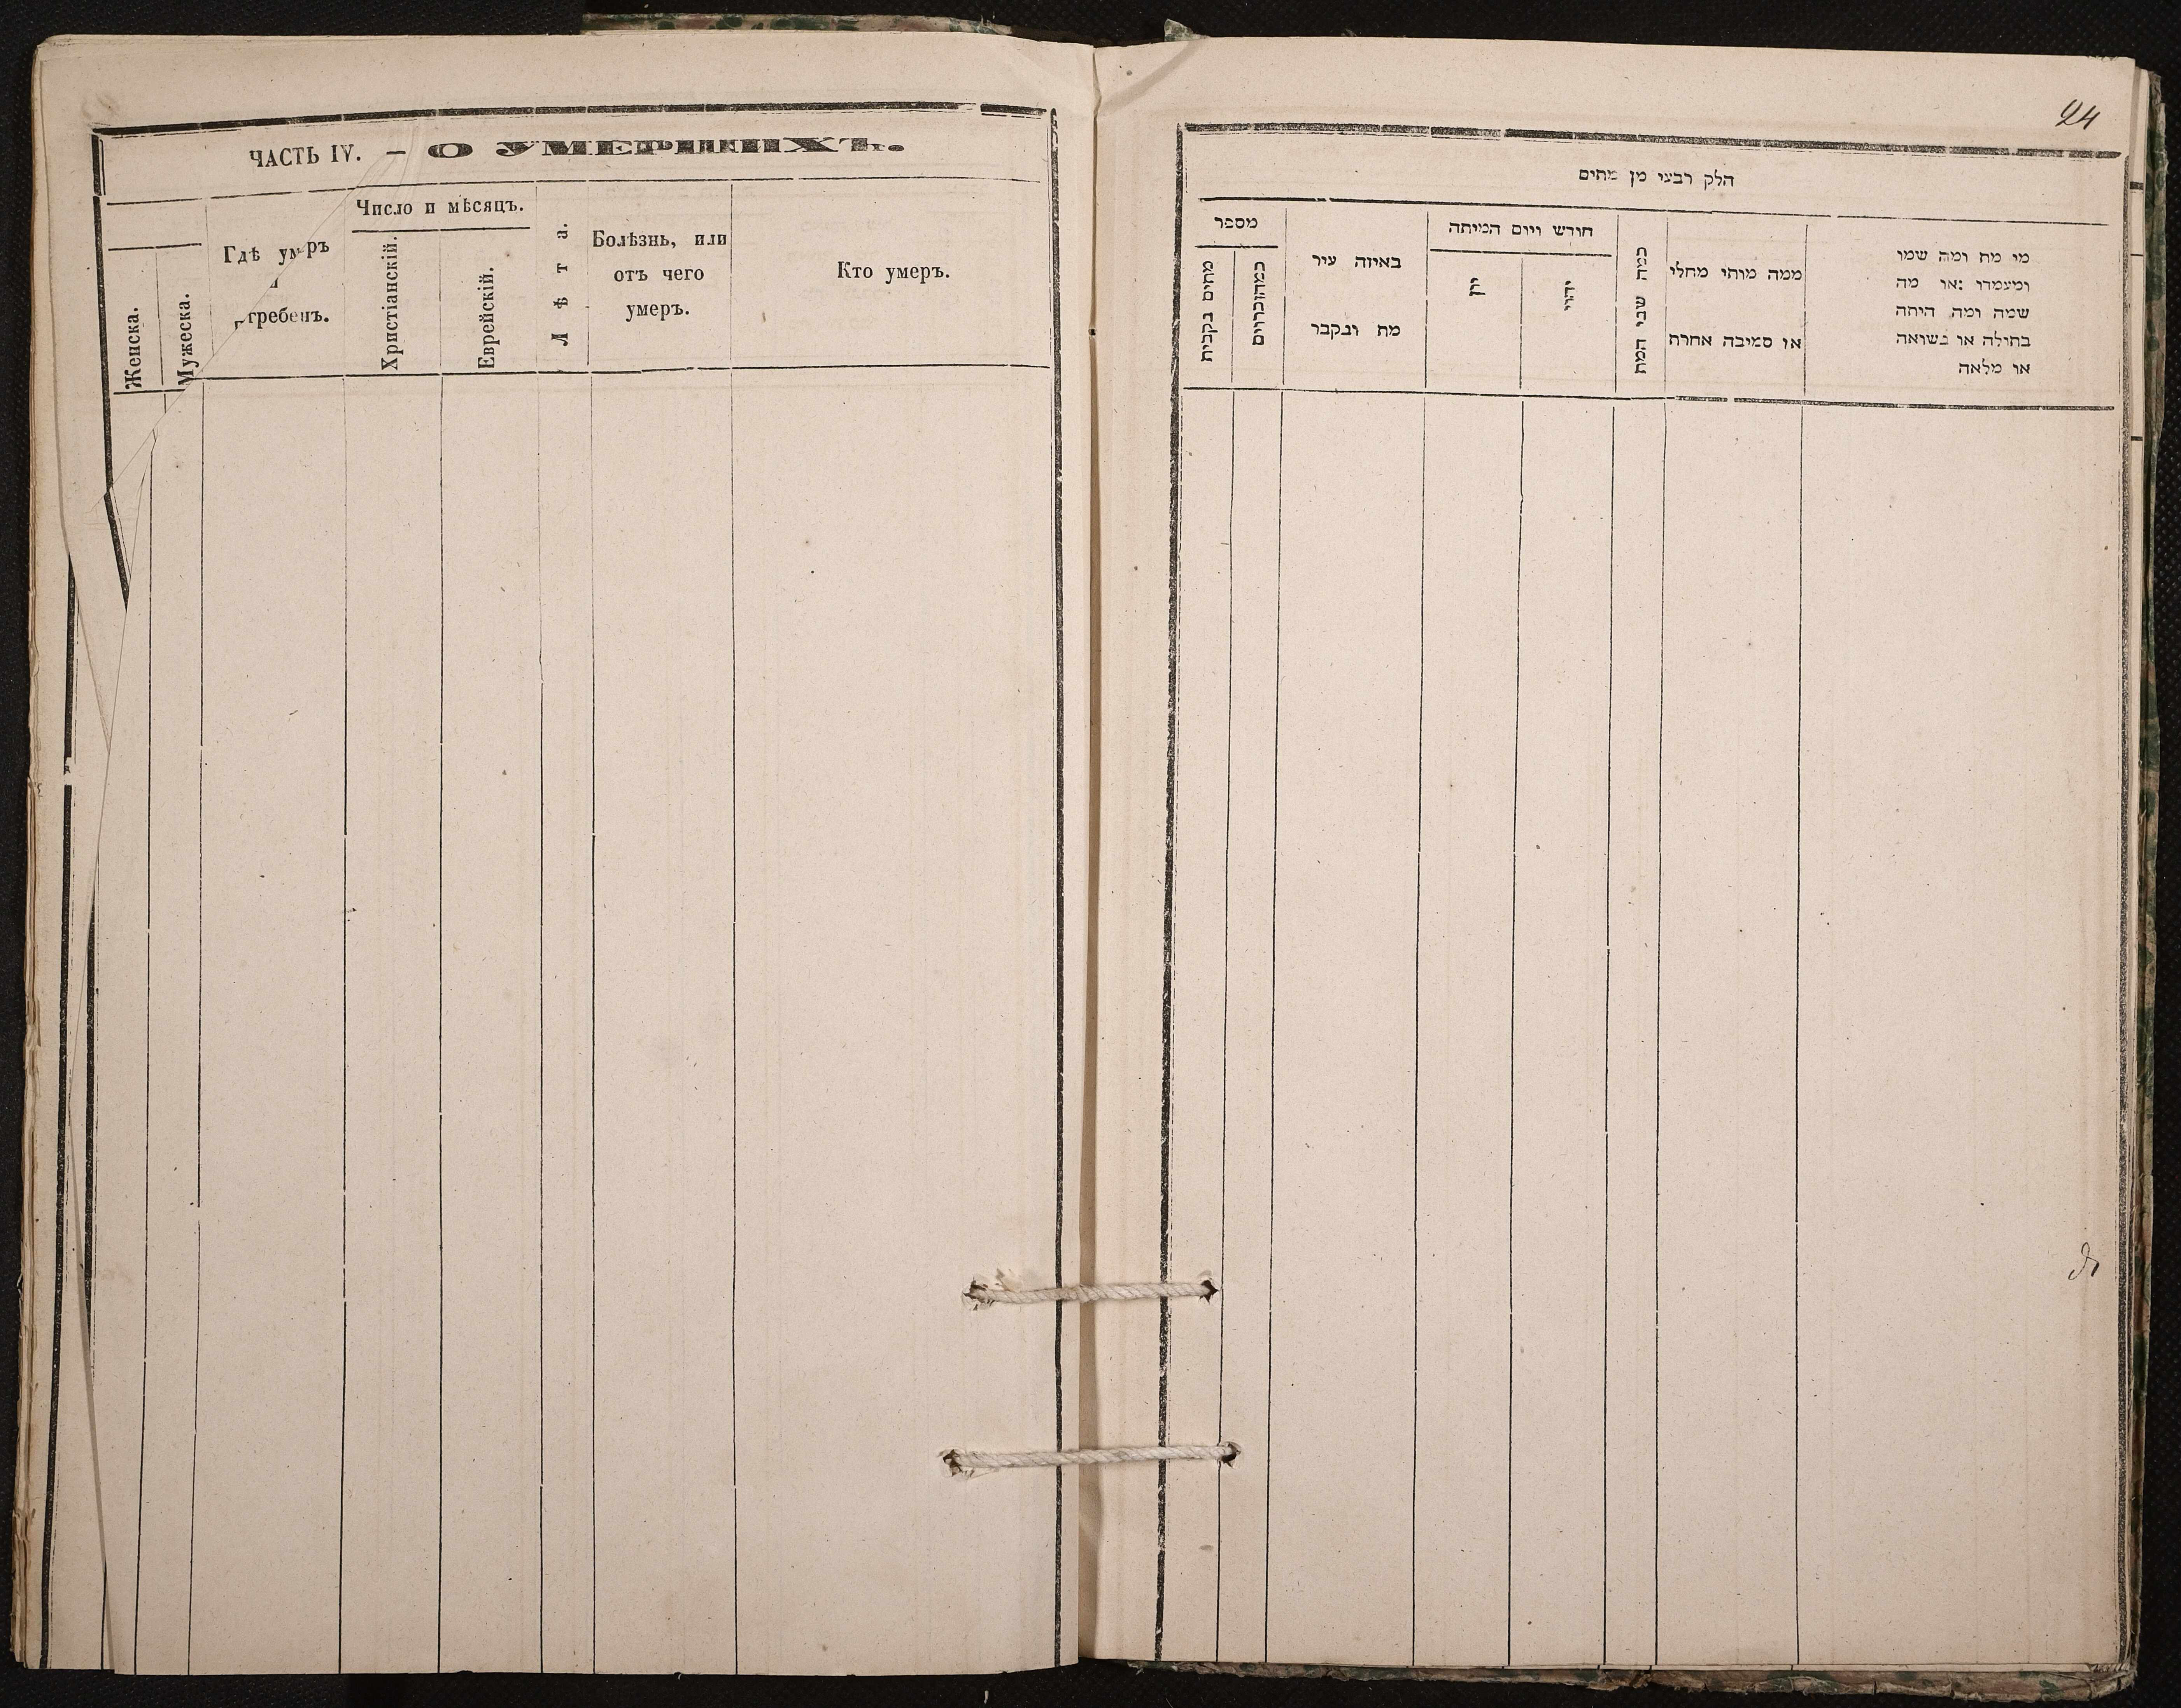 ЧАСТЬ IV. — О УМЕРШИХЪ.
Женска.
Мужеска.
Гдѣ умеръ
и
гребенъ.
Число и мѣсяцъ.
Христіанскій.
Еврейскій.
Лѣта.
Болѣзнь, или
отъ чего
умеръ.
Кто умеръ.
24
הלק רבעי מן מתים
מספר
מתים בקבית
באיזה עיר
מת ונקבר
חורש ויום המיתה
יון
יהוי
כמה שני המת
ממה מותי מחלי
או סמיבה אחרת
מי מת ומה שמו
ומעמדו :או מה
שמה ומה היתה
בתולה או נשואה
או מלאה